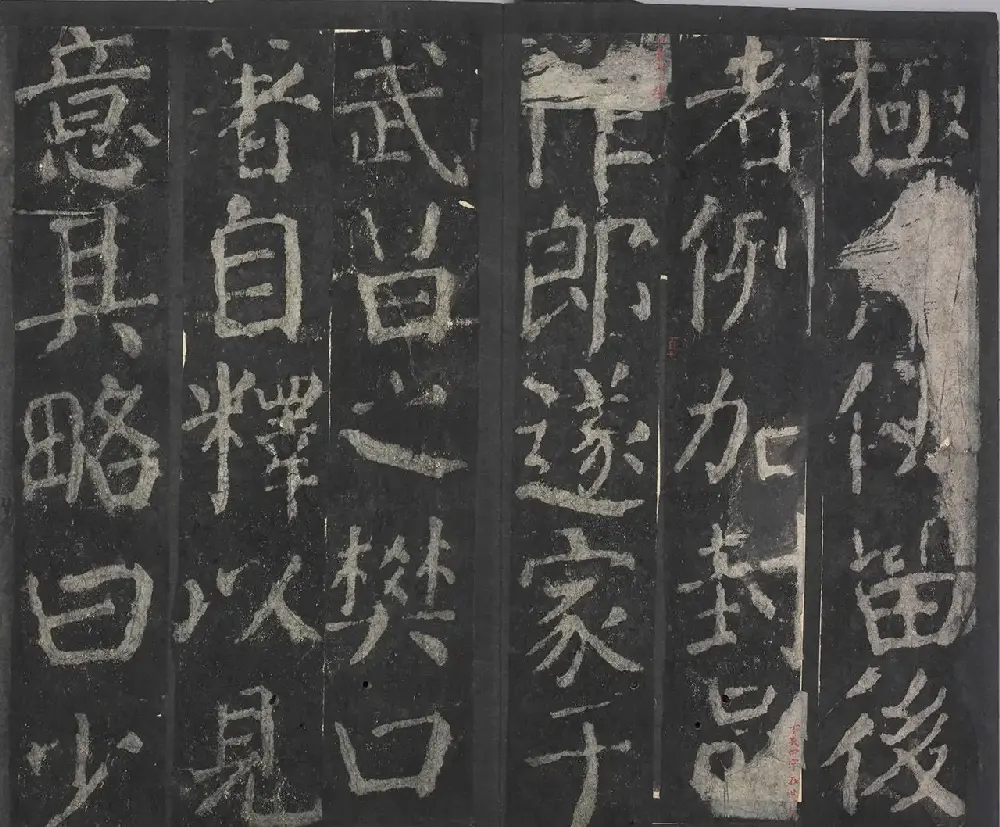 極留後
者例加封
作郎遂家于
武昌之樊口
著自釋以見
意其略曰少